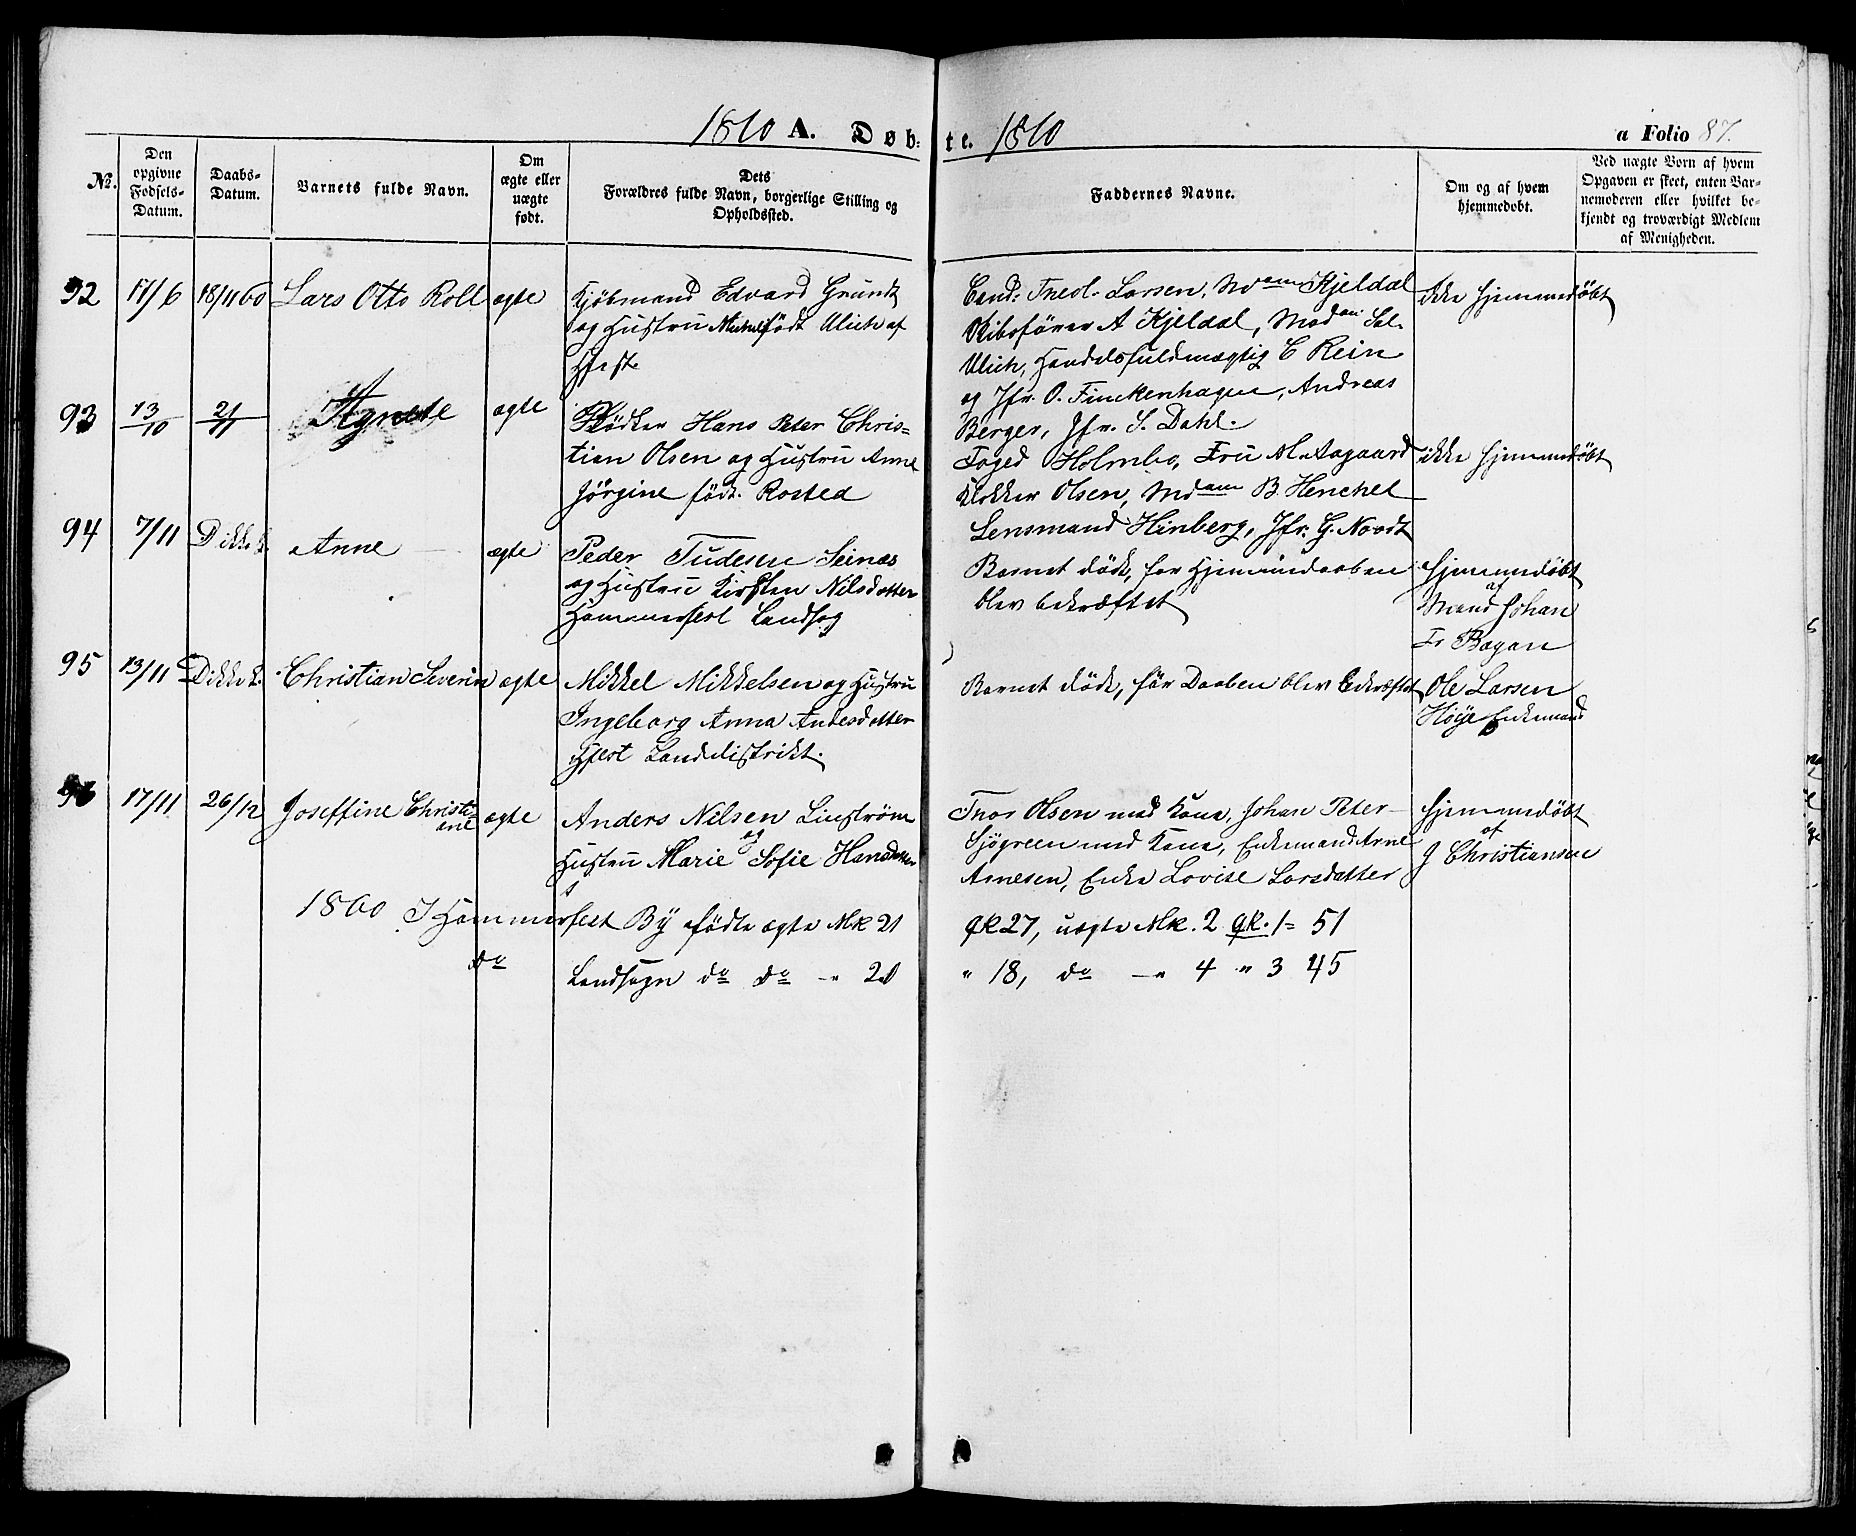 1860 A. Døb-
te. 1860
a Folio 87.
No.
Den opgivne Fødsels-Datum.
Daabs-Datum.
Barnets fulde Navn.
Om ægte eller uægte født.
Dets Forældres fulde Navn, borgerlige Stilling og Opholdssted.
Faddernes Navne.
Om og af hvem hjemmedøbt.
Ved uægte Børn af hvem Opgaven er skeet, enten Barnemoderen eller hvilket bekjendt og troværdigt Medlem af Menigheden.
92 17/6 18/11 60 Lars Otto Roll ægte Kjøbmand Edvard Grundt
og Hustru født Ulich af
Hfest.
Cand: Theol. Larsen, Mdam Kjeldal
Skibsfører A Kjeldal, Madam Sel.
Ulich, Handelsfuldmægtig C Rein
og Jfr. O. Finckenhagen, Andreas
Berger, Jfr. S. Dahl.
Ikke hjemmedøbt
93 13/10 21/11 Agnete ægte Bødker Hans Peter Chris=
tian Olsen og Hustru Anne
Jørgine født. Rosted
Foged Holmbo, Fru M. Aagaard
Klokker Olsen, Mdam B Henchel
Lensmand Hinberg, Jfr. G. Noodt
ikke hjemmedøbt
94 7/11 D ikke b. Anne ægte Peder Tudesen Seinæs
og Hustru Kirsten Nilsdatter
Hammerfest Landsog
Barnet døde, før Hjemmedaaben
blev bekræftet
hjemmedøbt
af
Mand Johan
Fr Bagan
95 13/11 D ikke b. Christian Severin ægte Mikkel Mikkelsen og Hustru
Ingeborg Anna Andesdatter
Hfest Landdistrikt.
Barnet døde, før Daaben blev bekræftet
Ole Larsen
Høye Enkemand
96 17/11 26/12 Joseffine Christi=
ane ægte Anders Nilsen Linstrøm
og
Hustru Marie Sofie Hansdatter
Thor Olsen med Kone, Johan Peter
Sjøgreen med Kone, Enkemand Arne
Arnesen, Enke Lovise Larsdatter
hjemmedøbt
af
J Christiansen
1860 I Hammerfest By fødte ægte Mk 21
qk 27, uægte Mk. 2 qk. 1 = 51
do Landsogn do do -"- 20
" 18, do -"- 4 " 3 45